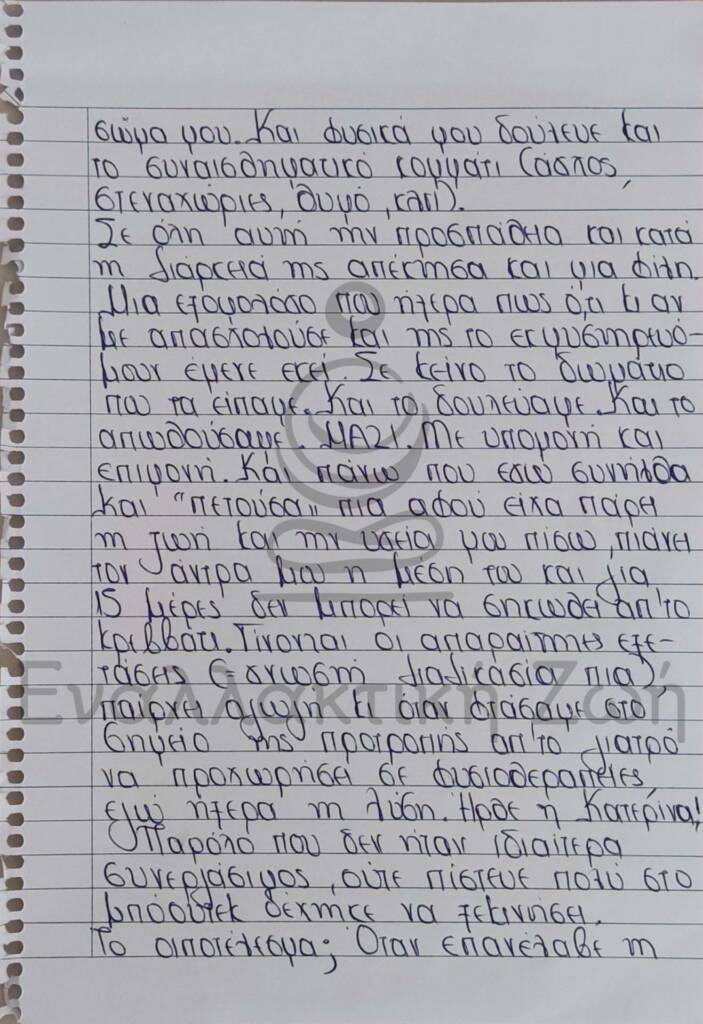 σώμα μου. Και φυσικά μου δούλευε και
το συναισθηματικό κομμάτι (άσπος,
στεναχώριες, θυμό, κλπ).
Σε όλη αυτή την προσπάθεια και κατά
τη διάρκειά της απέκτησα και μια φίλη.
Μια εξομολόγο που ήξερα πως ό,τι κι αν
με απασχολούσε και της το εκμυστηρευό-
μουν έμενε εκεί. Σε κείνο το δωμάτιο
που τα είπαμε. Και το δουλεύαμε. Και το
απωθούσαμε. ΜΑΖΙ. Με υπομονή και
επιμονή. Και πάνω που εγώ συνήλθα
και "πετούσα" πια αφού είχα πάρει
τη ζωή και την υγεία μου πίσω, πιάνει
τον άντρα μου η μέση του και για
15 μέρες δεν μπορεί να σηκωθεί απ'το
κρεββάτι. Γίνονται οι απαραίτητες εξε-
τάσεις (- γνωστή διαδικασία πια),
παίρνει αγωγή κι όταν φτάσαμε στο
σημείο της προτροπής απ'το γιατρό
να προχωρήσει σε φυσιοθεραπείες,
εγώ ήξερα τη λύση. Ήρθε η Κατερίνα!
Παρόλο που δεν ήταν ιδιαίτερα
συνεργάσιμος, ούτε πίστευε πολύ στο
μπόουτεκ δέχτηκε να ξεκινήσει.
Το αποτέλεσμα; Όταν επανέλαβε τη
Εναλλακτική Ζωή